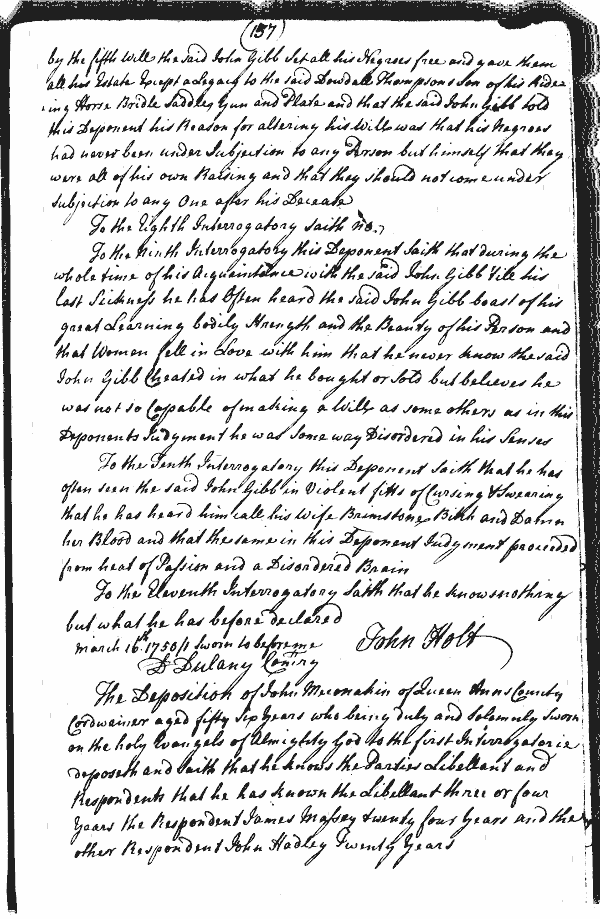 (157)
by the fifth Will the said John Gibb Set all his Negroes free and gave them
all his Estate Except a Legacy to the said Dowdall Thompsons Son of his Ride=
=ing Horse Bridle Saddle Gun and Plate and that the said John Gibb told
this Deponent his Reason for altering his Will was that his Negroes
had never been under Subjection to any Person but himself that they
were all of his own Raising and that they should not come under
subjection to any One after his Decease
To the Eighth Interrogatory saith no.
To the Ninth Interrogatory this Deponent Saith that during the
whole time of his Acquaintance with the said John Gibb till his
last Sickness he has Often heard the said John Gibb boast of his
great Learning bodily Strength and the Beauty of his Person and
that Women fell in Love with him that he never know the said
John Gibb Cheated in what he bought or Sold but believes he
was not so Cappable of making a Will as some others as in this
Deponents Judgment he was Some way Disordered in his Senses
To the Tenth Interrogatory this Deponent Saith that he has
often seen the said John Gibb in Violent fitts of Cursing & Swearing
that he has heard him call his Wife Brimstone Bitch and Damn
her Blood and that the same in this Deponent Judgment proceeded
from heat of Passion and a Disordered Brain
To the Eleventh Interrogatory Saith that he knows nothing
but what he has before declared
March 16th 1750/1 Sworn to before me John Holt
D Dulany Comry
The Deposition of John Meconakin of Queen Anns County
Cordwainer aged fifty Six Years who being duly and Solemnly Sworn
on the holy Evangels of Almighty God to the first Interrogatorie
deposeth and Saith that he knows the Parties Libellant and
Respondents that he has known the Libellant three or four
Years the Respondent James Massey twenty four Years and the
other Respondent John Hadley Twenty Years